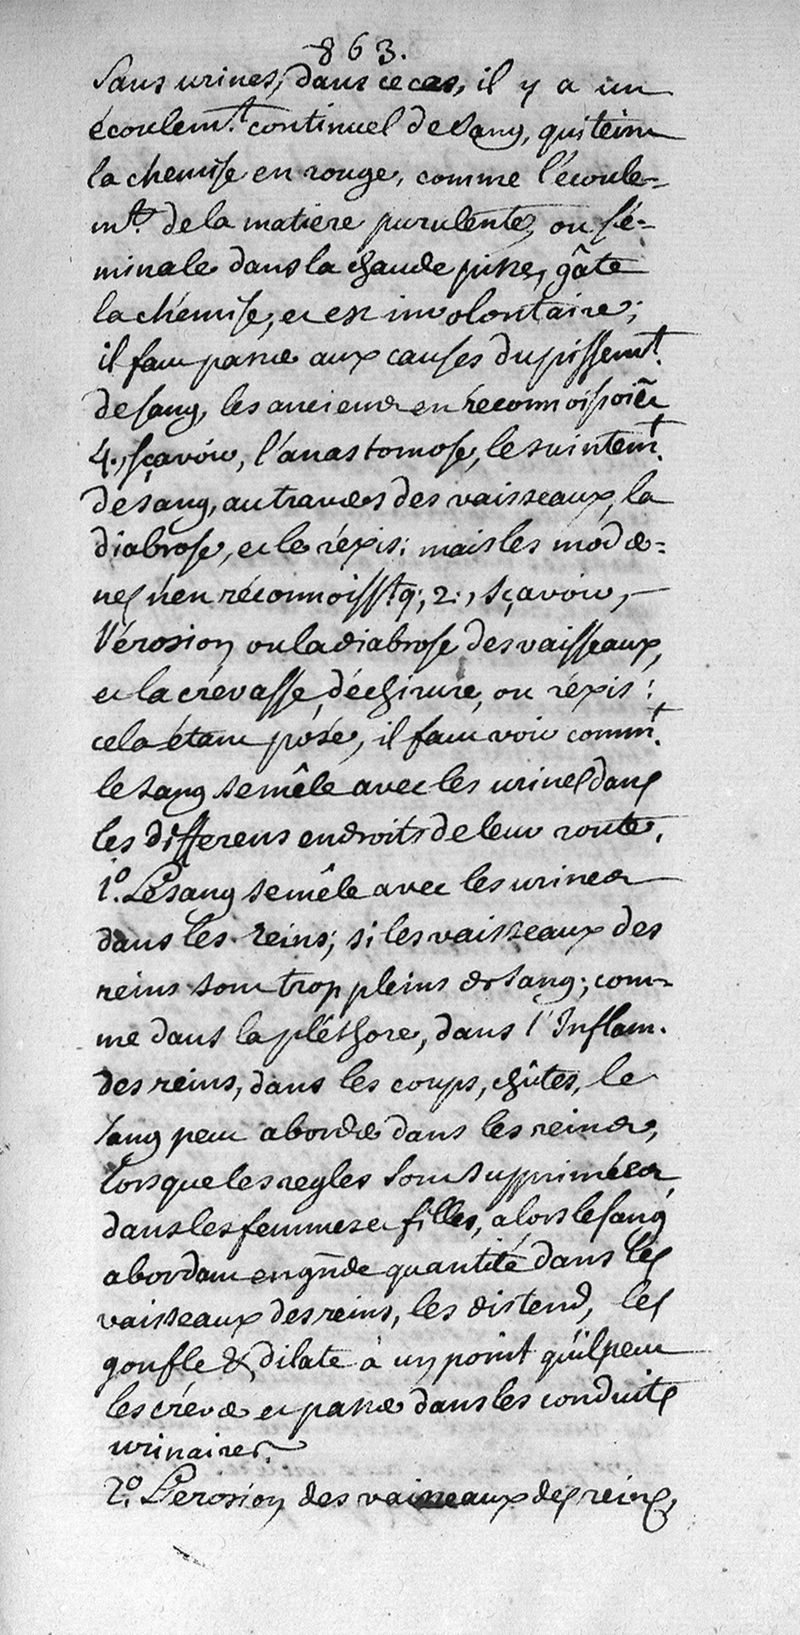 863.
sans urines, dans ce cas, il y a un
écoulem.t continuel de sang, qui teint
la chemise en rouge, comme l'écoule=
m.t de la matiere purulente, ou sé=
minale dans la chaude pisse, gâte
la chémise, et est involontaire;
il faut passer aux causes du pissem.t
de sang, les anciens en réconnoissoiẽt
4., sçavoir, l'anastomose, le suintem.t
de sang, au travers des vaisseaux, la
diabrose, et le réxis; mais les moder=
nes n'en réconnoiss.t q; 2., sçavoir, —
l'érosion ou la diabrose des vaisseaux,
et la crévasse, déchirure, ou réxis:
cela étant posé, il faut voir comm.t
le sang se mêle avec les urines dans
les differens endroits de leur route,
1.o Le sang se mêle avec les urines
dans les reins; si les vaisseaux des
reins sont trop pleins de sang; com=
me dans la pléthore, dans l'Inflam.
des reins, dans les coups, chûtes, le
sang peut aborder dans les reins,
lorsque les regles sont supprimées
dans les femmes et filles, alors le sang
abordant en gñde quantité dans les
vaisseaux des reins, les distend, les
gonfle & dilate à un point qu'il peut
les créver et passer dans les conduits
urinaires.
2.o L'erosion des vaisseaux des reins,